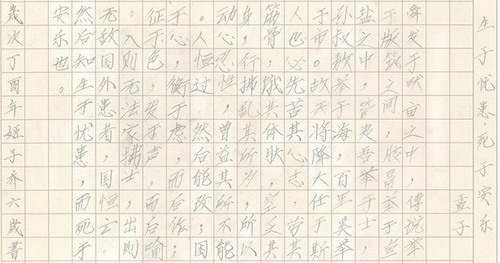 生于忧患·死于安乐
孟子
舜发于畎亩之中，傅说举
于版筑之间，胶鬲举于鱼
盐之中，管夷吾举于士，
孙叔敖举于海，百里奚举
于市。故天将降大任于斯
人也必先苦其心志，劳其
筋骨，饿其体肤，空乏其
身，行拂乱其所为，所以
动心忍性，曾益其所不能
。人恒过，然后能改；困
于心，衡于虑，而后作；
征于色，发于声，而后喻
。入则无法家拂士，出则
无敌国外患者，国恒亡。
然后知生于忧患，而死于
安乐也。
岁次丁酉年姬子乔六岁书